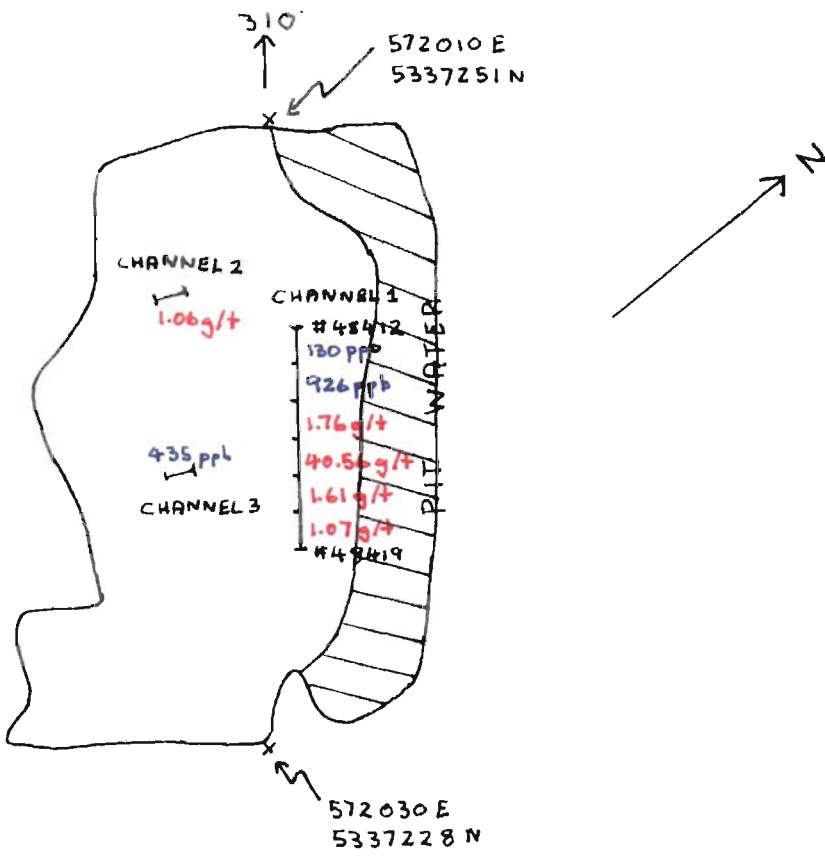 310
572010 E
5337251 N
N
CHANNEL 2
1.06 g/t
CHANNEL 1
#48412
130 ppb
926 ppb
1.76 g/t
40.56 g/t
1.61 g/t
1.07 g/t
#48419
435 ppb
CHANNEL 3
PIT WATER
572030 E
5337228 N